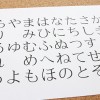 ちやまはなたさか
り みひにちしき
ゆむふぬつす
れ めへねてせ
よもほのとそ